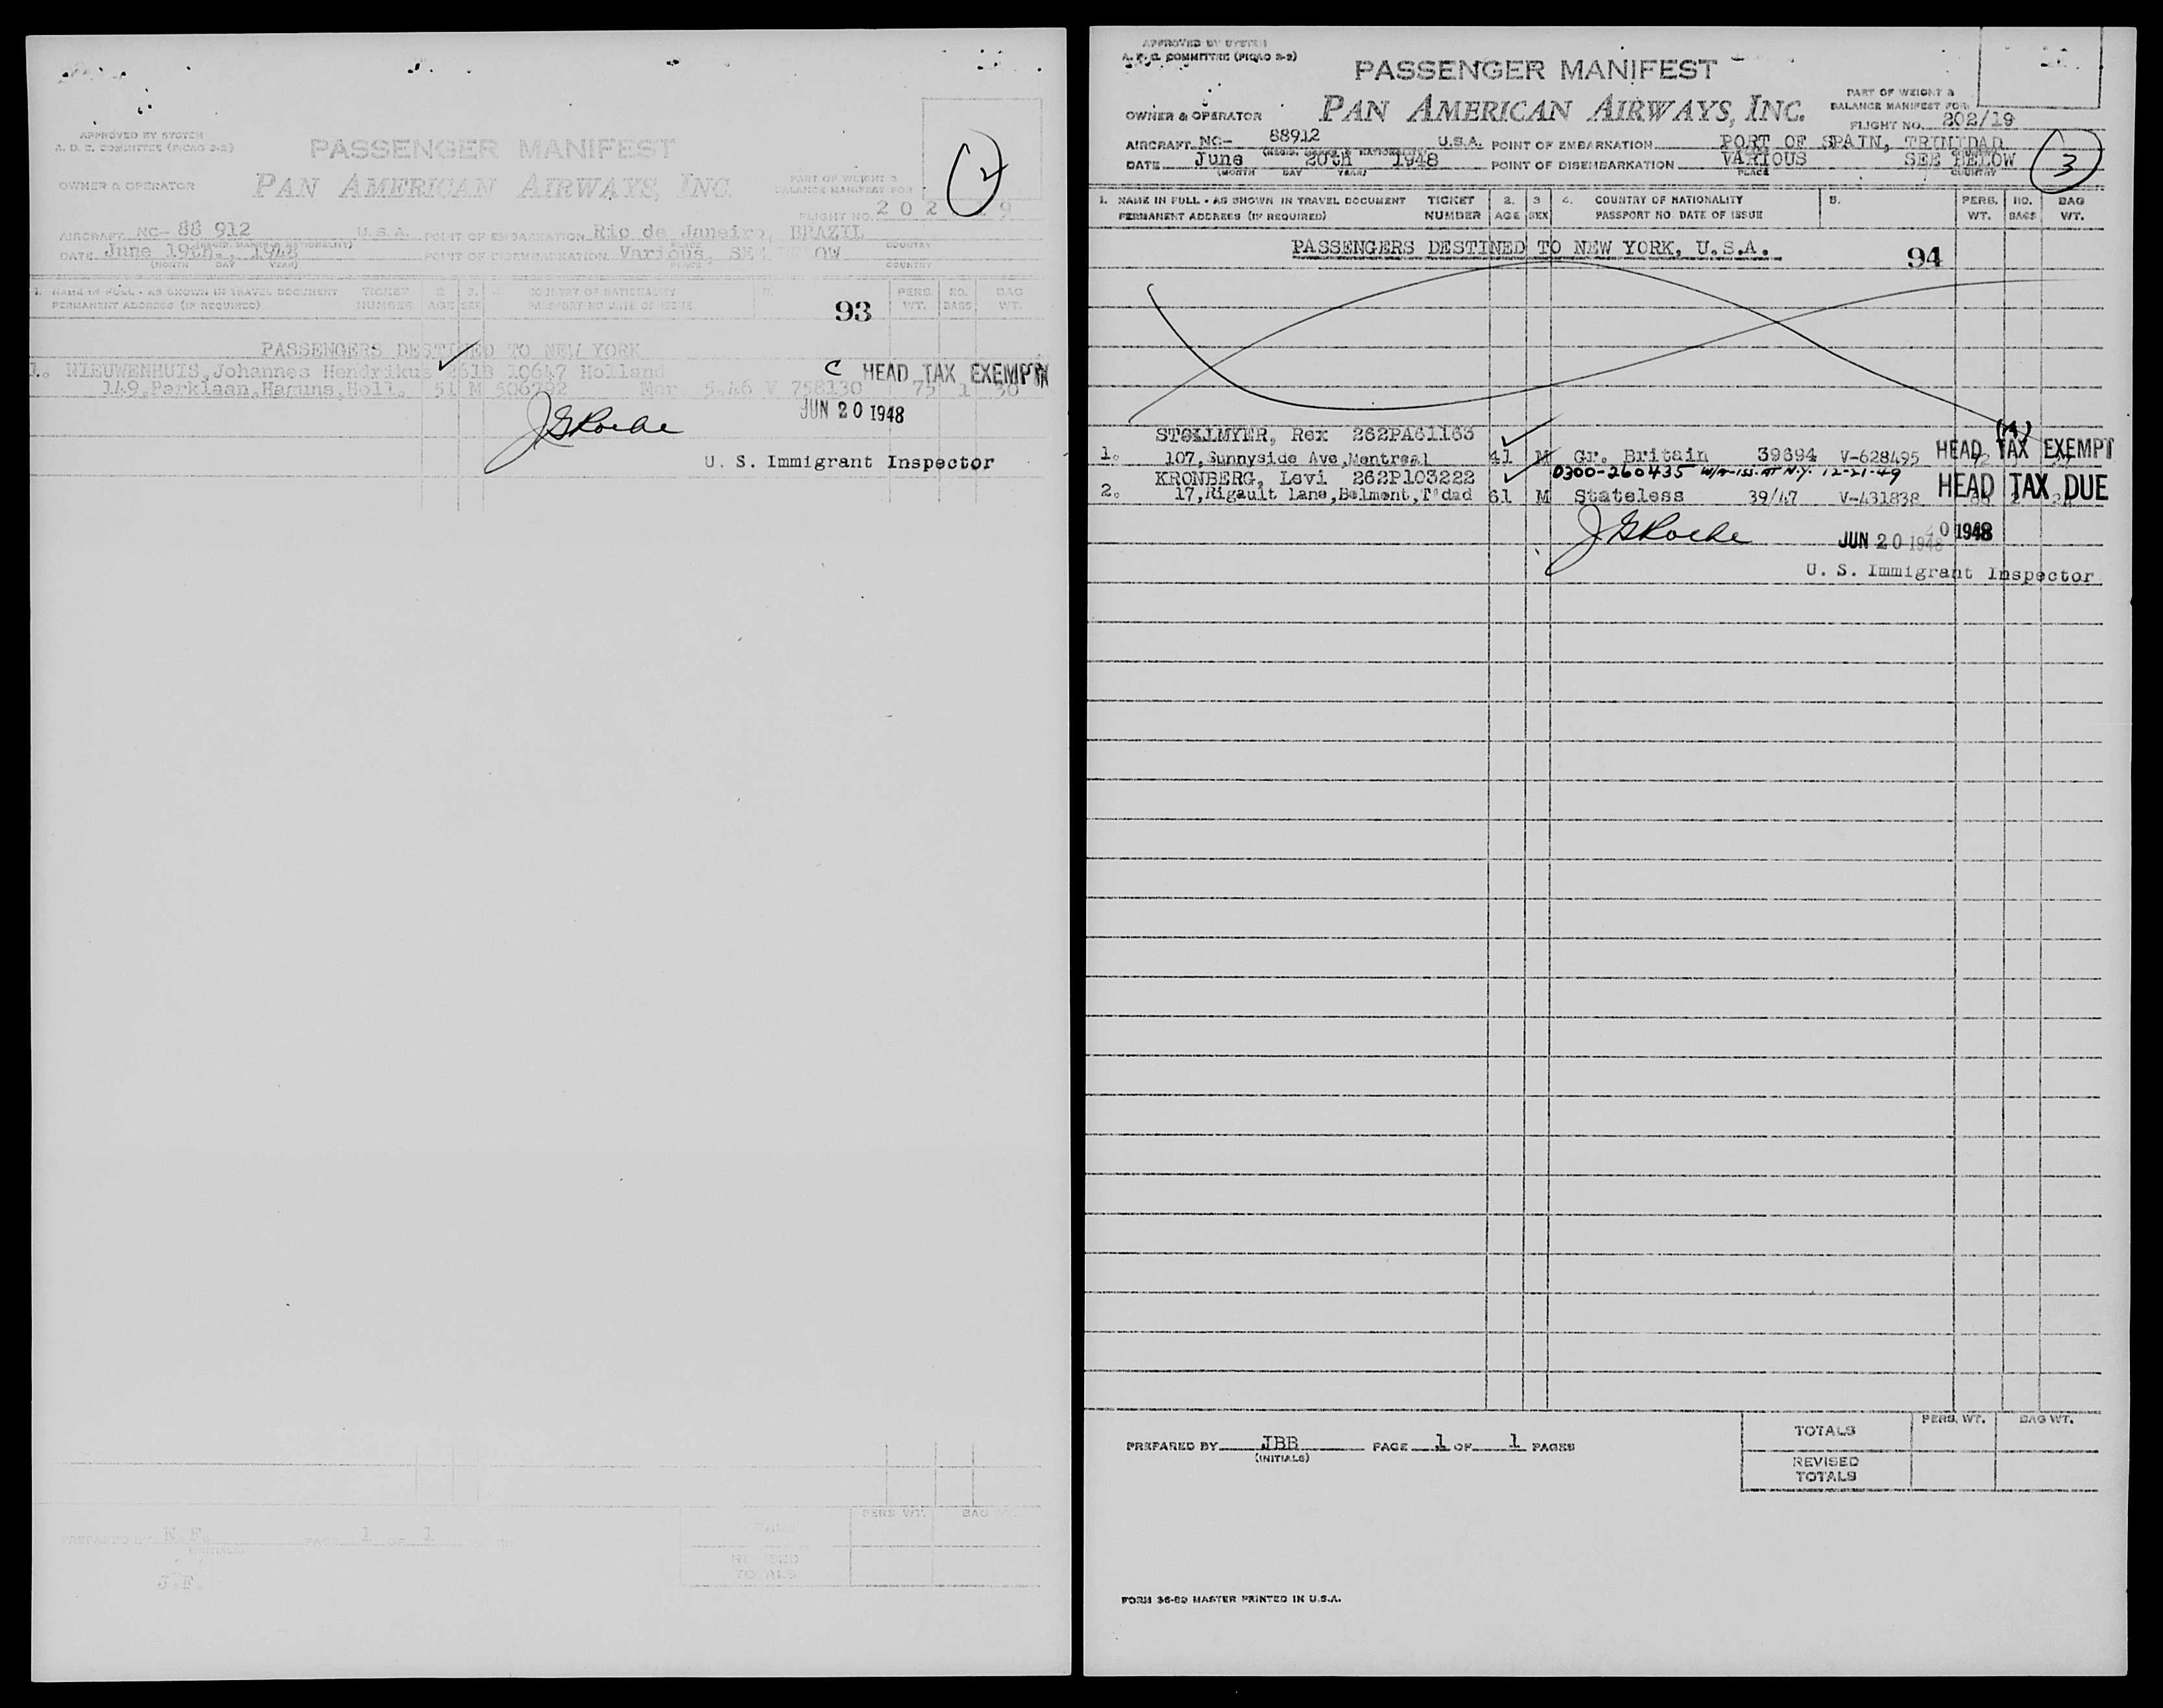 APPROVED BY SYSTEM
A. D. C. COMMITTEE (PICAO 2-2)
PASSENGER MANIFEST
OWNER & OPERATOR PAN AMERICAN AIRWAYS, INC.
PART OF WEIGHT &
BALANCE MANIFEST FOR
FLIGHT NO. 202 19
2
AIRCRAFT NC- 88 912 U.S.A. POINT OF EMBARKATION Rio de Janeiro, BRAZIL
DATE June 19th., 1948 POINT OF DISEMBARKATION Various, SEE OW
(MONTH DAY YEAR) PLACE COUNTRY
1. NAME IN FULL - AS SHOWN IN TRAVEL DOCUMENT TICKET 2. 3. 4. COUNTRY OF NATIONALITY 5. PERS. NO. BAG
PERMANENT ADDRESS (IF REQUIRED) NUMBER AGE SEX PASSPORT NO DATE OF ISSUE WT. BAGS WT.
93
PASSENGERS DESTINED TO NEW YORK
1. NIEUWENHUIS, Johannes Hendrikus 261B 10647 Holland C HEAD TAX EXEMPT
149, Parklaan, Holl. 51 M 506792 Mar. 5.46 V 758130 75 1 30
JUN 20 1948
J G Roche
U. S. Immigrant Inspector
PREPARED BY N.F. PAGE 1 OF 1
(INITIALS)
J.F.
PERS WT. BAG
REVISED
TOTALS
APPROVED BY SYSTEM
A. D. C. COMMITTEE (PICAO 2-2)
PASSENGER MANIFEST
OWNER & OPERATOR PAN AMERICAN AIRWAYS, INC.
PART OF WEIGHT &
BALANCE MANIFEST FOR
FLIGHT NO. 202/19
AIRCRAFT NC- 88912 U.S.A. POINT OF EMBARKATION PORT OF SPAIN, TRINIDAD
DATE June 20th 1948 POINT OF DISEMBARKATION VARIOUS SEE BELOW
(MONTH DAY YEAR) PLACE COUNTRY
3
1. NAME IN FULL - AS SHOWN IN TRAVEL DOCUMENT TICKET 2. 3 4. COUNTRY OF NATIONALITY 5. PERS. NO. BAG
PERMANENT ADDRESS (IF REQUIRED) NUMBER AGE SEX PASSPORT NO. DATE OF ISSUE WT. BAGS WT.
PASSENGERS DESTINED TO NEW YORK, U.S.A. 94
STOLLMYER, Rex 262PA61163
1. 107, Sunnyside Ave, Montreal 41 M Gr. Britain 39694 V-628495 HEAD TAX EXEMPT
0300-260435 W/A-ISS. AT N.Y. 12-21-49
KRONBERG, Levi 262P103222
2. 17, Rigault Lane, Belmont, T'dad 61 M Stateless 39/47 V-431838 HEAD TAX DUE
J G Roche
JUN 20 1948 0 1948
U. S. Immigrant Inspector
PREPARED BY JBB PAGE 1 OF 1 PAGES
(INITIALS)
PERS. WT. BAG WT.
TOTALS
REVISED
TOTALS
FORM 36-80 MASTER PRINTED IN U.S.A.